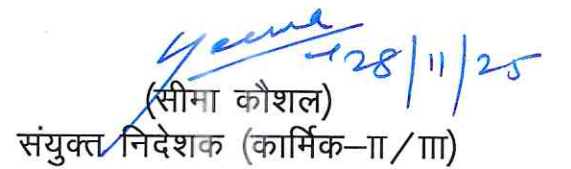 Seema
28/11/25
(सीमा कौशल)
संयुक्त निदेशक (कार्मिक–II/III)